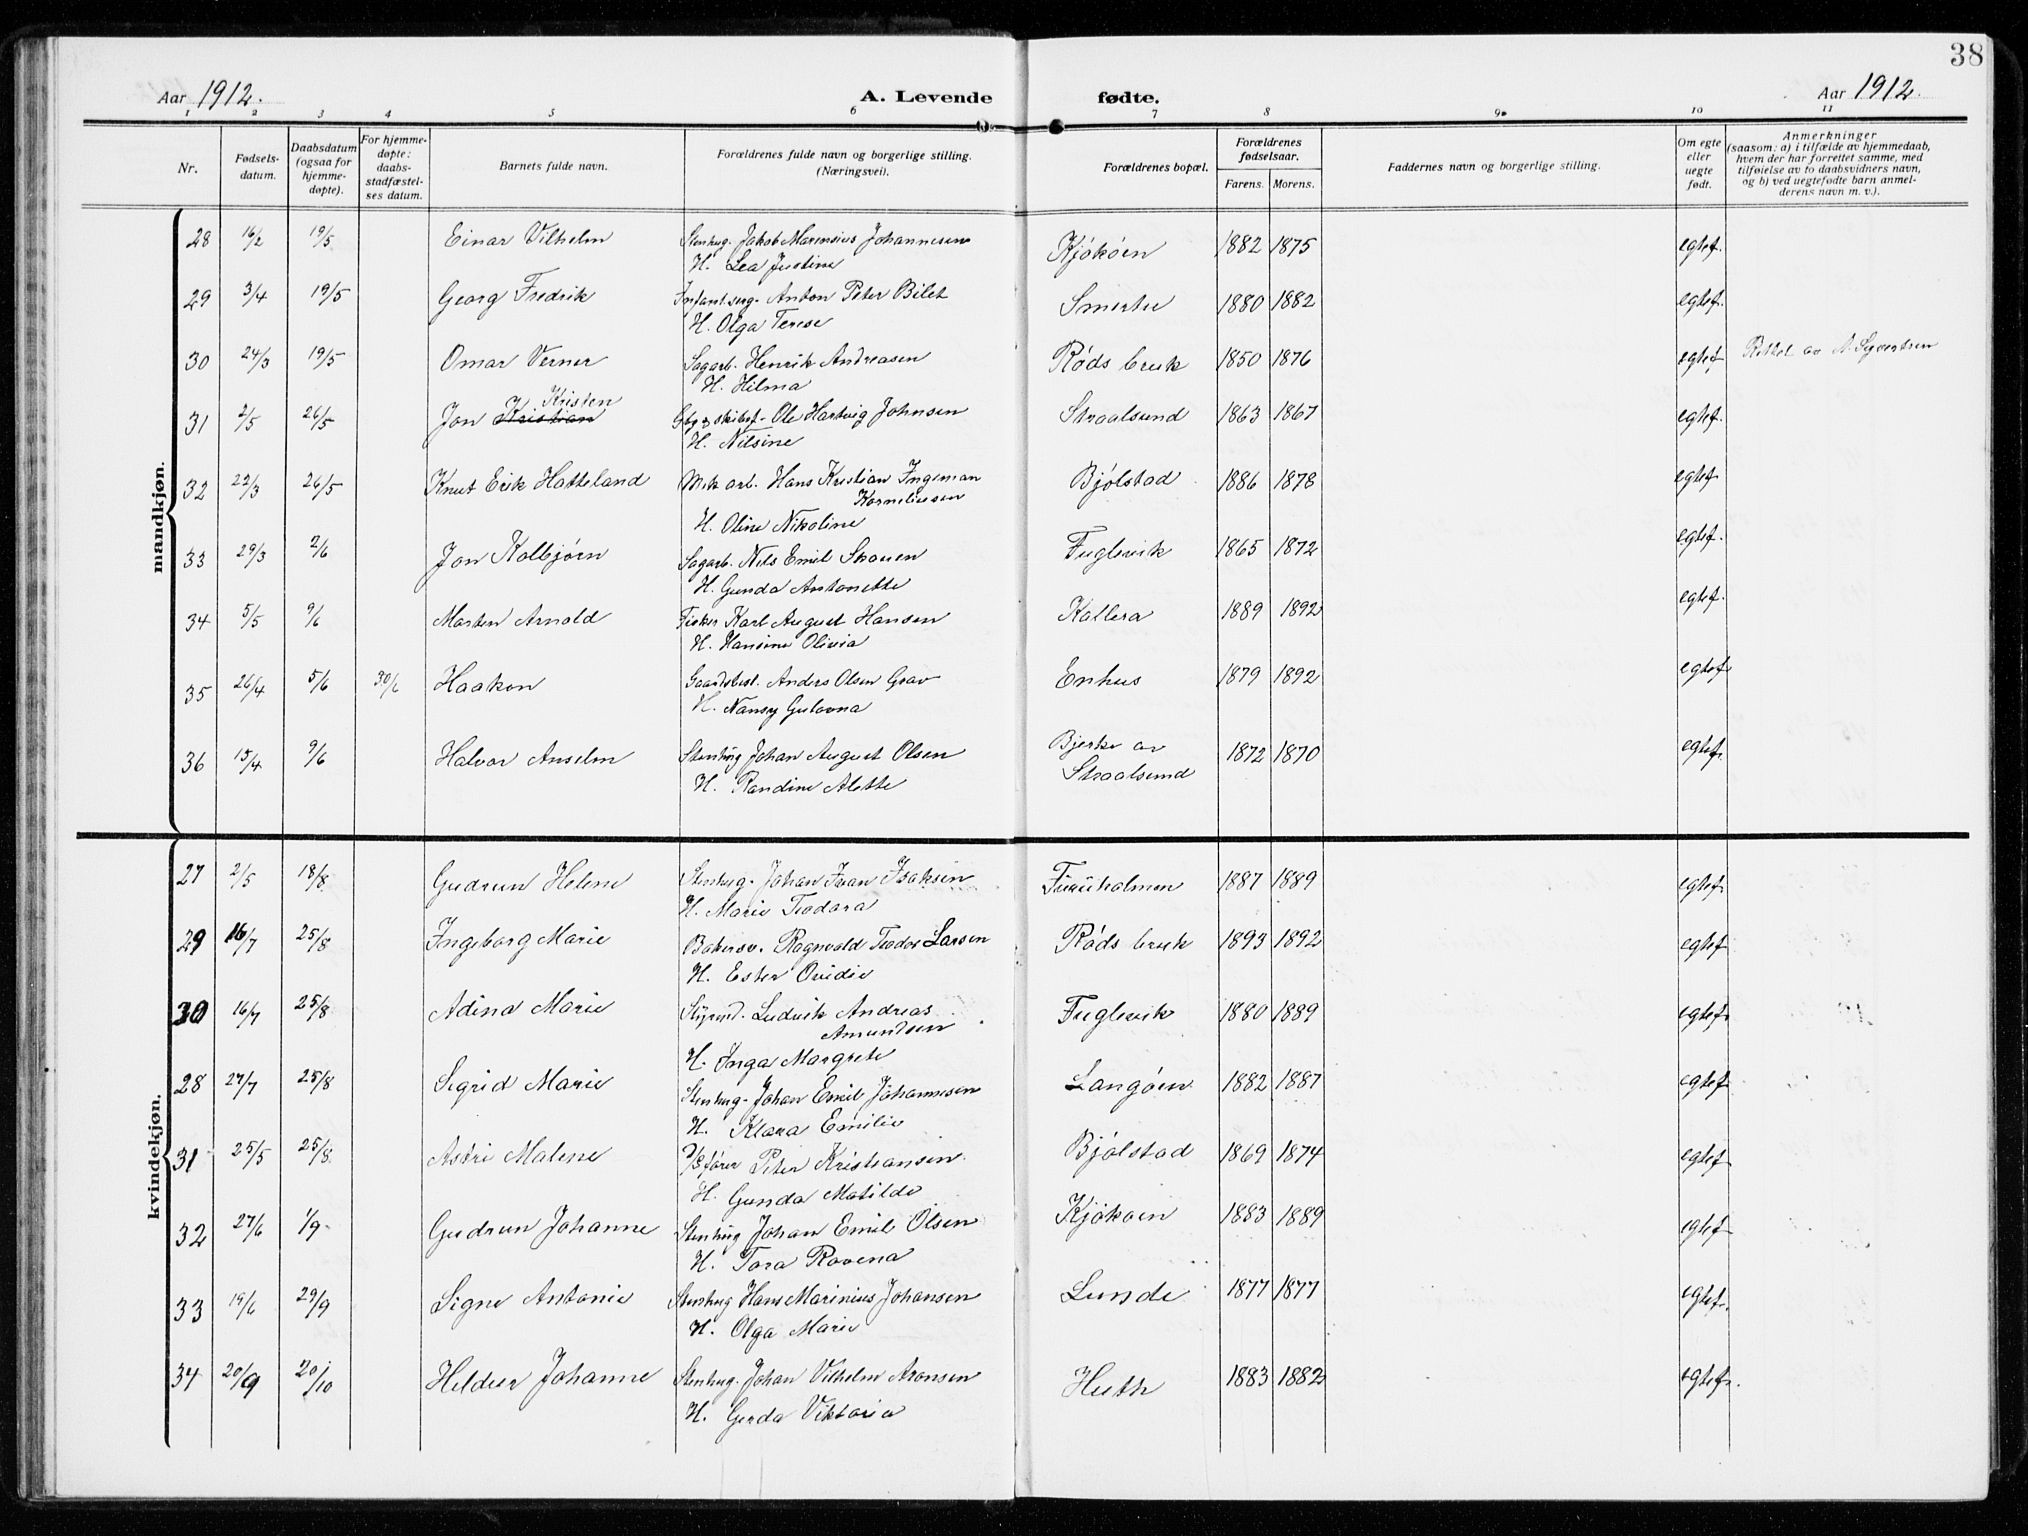 38
Aar 1912. A. Levende fødte. Aar 1912.
1 2 3 4 5 6 7 8 9 10 11
Nr. Fødselsdatum. Daabsdatum (ogsaa for hjemmedøpte). For hjemmedøpte: daabsstadfæstelses datum. Barnets fulde navn. Forældrenes fulde navn og borgerlige stilling. (Næringsvei). Forældrenes bopæl. Forældrenes fødselsaar. Farens. Morens. Faddernes navn og borgerlige stilling. Om egte eller uegte født. Anmerkninger (saasom: a) i tilfælde av hjemmedaab, hvem der har forrettet samme, med tilføielse av to daabsvidners navn, og b) ved uegtefødte barn anmelderens navn m. v.).
mandkjøn.
28 16/2 19/5 Einar Vilhelm Stenhug. Jakob Marensius Johannesen Kjøkøen 1882 1875 egtef.
H. Lea Justine
29 3/4 19/5 Georg Fredrik Infant.serg. Anton Peter Bilet 1880 1882 egtef.
H. Olga Terese
30 24/3 19/5 Omar Verner Sagarb. Henrik Andreasen Røds bruk 1850 1876 egtef. av A. Syvertsen
H. Hilma
Kristen
31 2/5 26/5 Jon Kristian Ole Hartvig Johnsen Straalsund 1863 1867 egtef.
H. Nilsine
32 22/3 26/5 Knut Erik Hatteland Mek arb. Hans Kristian Ingeman Bjølstad 1886 1878 egtef.
Korneliusen
H. Oline Nikoline
33 29/3 2/6 Jon Kolbjørn Sagarb. Nils Emil Skauen Fuglevik 1865 1872 egtef.
H. Gunda Antonette
34 5/5 9/6 Marten Arnold Fisker Karl August Hansen Kallera 1889 1892 egtef.
H. Hansine Olivia
35 26/4 5/6 30/6 Haakon Gaardsbest. Anders Olsen Grav Enhus 1879 1892 egtef.
H. Nansy Gulovna
36 15/4 9/6 Halvor Anselm Stenhug Johan August Olsen Bjerke av 1872 1870 egtef.
H. Randine Alette Straalsund
kvindekjøn.
27 2/5 18/8 Gudrun Helene Stenhug. Johan Ivan Isaksen 1887 1889 egtef.
H. Marie Teodora
29 16/7 25/8 Ingeborg Marie Bakersv. Ragnvald Teodor Larsen Røds bruk 1893 1892 egtef.
H. Ester Ovidie
30 16/7 25/8 Adina Marie Styrmd. Ludvik Andreas Fuglevik 1880 1889 egtef.
Amundsen
H. Inga Margrete
28 27/7 25/8 Sigrid Marie Stenhug. Johan Emil Johannesen Langøen 1882 1887 egtef.
H. Klara Emilie
31 25/5 25/8 Astri Malene Peter Kristiansen Bjølstad 1869 1874 egtef.
H. Gunda Matilde
32 27/6 1/9 Gudrun Johanne Stenhug Johan Emil Olsen Kjøkøen 1883 1889 egtef.
H. Tora Rovena
33 19/6 29/9 Signe Antonie Stenhug Hans Marinius Johansen Lunde 1877 1877 egtef.
H. Olga Marie
34 20/9 20/10 Heldur Johanne Stenhug. Johan Vilhelm Aronsen Huth 1883 1882 egtef.
H. Gerda Viktoria